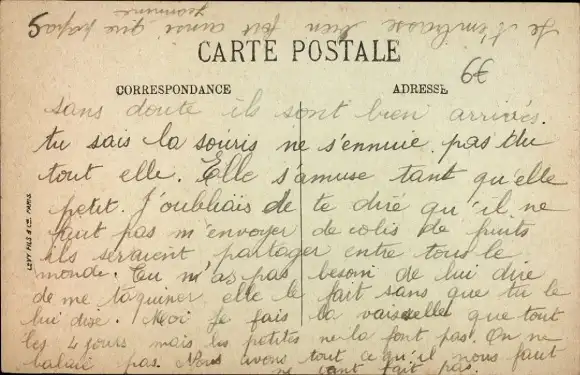 Je t'embrasse bien fort ainsi que papa
5
CARTE POSTALE
6€
CORRESPONDANCE
ADRESSE
sans doute ils sont bien arrivés.
tu sais la souris ne s'ennuie pas du
tout elle. Elle s'amuse tant qu'elle
petit. J'oubliais de te dire qu'il ne
faut pas m'envoyer de colis de fruits
ils seraient partager entre tous le
monde. Tu m'as pas besoin de lui dire
de me taquiner elle le fait sans que tu le
lui dise. Moi je fais la vaisselle que tout
les 4 jours mais les petites ne la font pas. On ne
balaie pas. Nous avons tout ce qu'il nous faut
fait pas.
LEVY FILS & Cie. PARIS